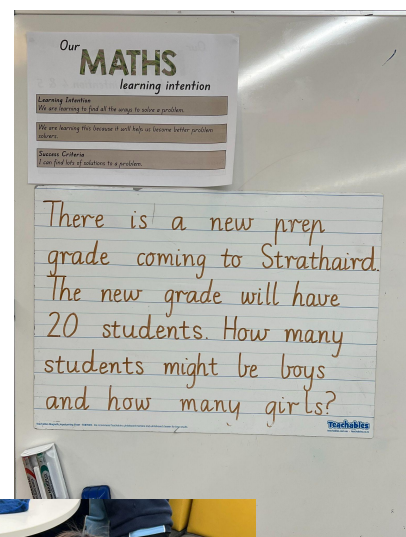 Our
MATHS
learning intention
Learning Intention
We are learning to find all the ways to solve a problem.
We are learning this because it will help us become better problem
solvers.
Success Criteria
I can find lots of solutions to a problem.
There is a new prep
grade coming to Strathaird.
The new grade will have
20 students. How many
students might be boys
and how many girls?
Teachables